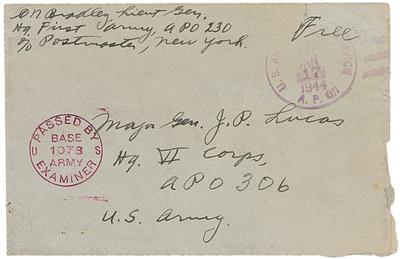 O N Bradley Lieut Gen. Free
Hq First Army, APO 230
c/o Postmaster, New York.
U.S. A
17
1944
A.P.O.
PASSED BY
U BASE S
1073
ARMY
EXAMINER
Major Gen. J. P. Lucas
Hq. VI Corps,
APO 306
U.S. Army.